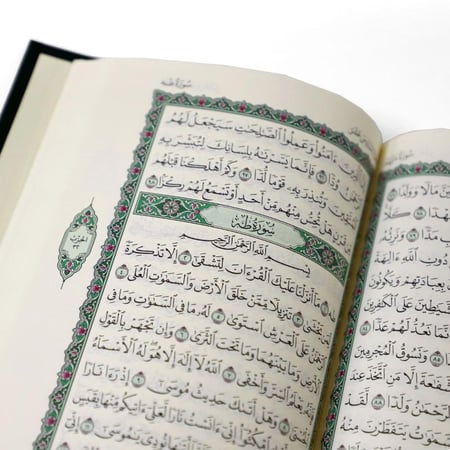 سُورَةُ مَرْيَمَ
مَالًا وَوَلَدًا
كَلَّا
مَدًّا ٧٩ وَنَرِثُهُ
دُونِ ٱللَّهِ
بِعِبَادَتِهِمْ وَيَكُونُونَ
عَلَى ٱلْكَٰفِرِينَ
إِنَّمَا نَعُدُّ لَهُمْ عَدًّا
وَنَسُوقُ ٱلْمُجْرِمِينَ
إِلَّا مَنِ ٱتَّخَذَ عِندَ
ٱلرَّحْمَٰنُ وَلَدًا ٨٨ لَّقَدْ
يَتَفَطَّرْنَ مِنْهُ
سُورَةُ طه
ءَامَنُوا۟ وَعَمِلُوا۟ ٱلصَّٰلِحَٰتِ سَيَجْعَلُ لَهُمُ
وُدًّا ٩٦ فَإِنَّمَا يَسَّرْنَٰهُ بِلِسَانِكَ لِتُبَشِّرَ بِهِ
وَتُنذِرَ بِهِۦ قَوْمًا لُّدًّا ٩٧ وَكَمْ أَهْلَكْنَا قَبْلَهُم
قَرْنٍ هَلْ تُحِسُّ مِنْهُم مِّنْ أَحَدٍ أَوْ تَسْمَعُ لَهُمْ رِكْزًۢا ٩٨
سُورَةُ طه
بِسْمِ ٱللَّهِ ٱلرَّحْمَٰنِ ٱلرَّحِيمِ
طه ١ مَآ أَنزَلْنَا عَلَيْكَ ٱلْقُرْءَانَ لِتَشْقَىٰٓ ٢ إِلَّا تَذْكِرَةً
٣ تَنزِيلًا مِّمَّنْ خَلَقَ ٱلْأَرْضَ وَٱلسَّمَٰوَٰتِ ٱلْعُلَى ٤
عَلَى ٱلْعَرْشِ ٱسْتَوَىٰ ٥ لَهُۥ مَا فِى ٱلسَّمَٰوَٰتِ وَمَا فِى
ٱلْأَرْضِ وَمَا بَيْنَهُمَا وَمَا تَحْتَ ٱلثَّرَىٰ ٦ وَإِن تَجْهَرْ بِٱلْقَوْلِ
ٱلسِّرَّ وَأَخْفَى ٧ ٱللَّهُ لَآ إِلَٰهَ إِلَّا هُوَ لَهُ ٱلْأَسْمَآءُ
٨ وَهَلْ أَتَىٰكَ حَدِيثُ مُوسَىٰٓ ٩ إِذْ رَءَا نَارًا
ٱمْكُثُوٓا۟ إِنِّىٓ ءَانَسْتُ نَارًا لَّعَلِّىٓ ءَاتِيكُم مِّنْهَا بِقَبَسٍ